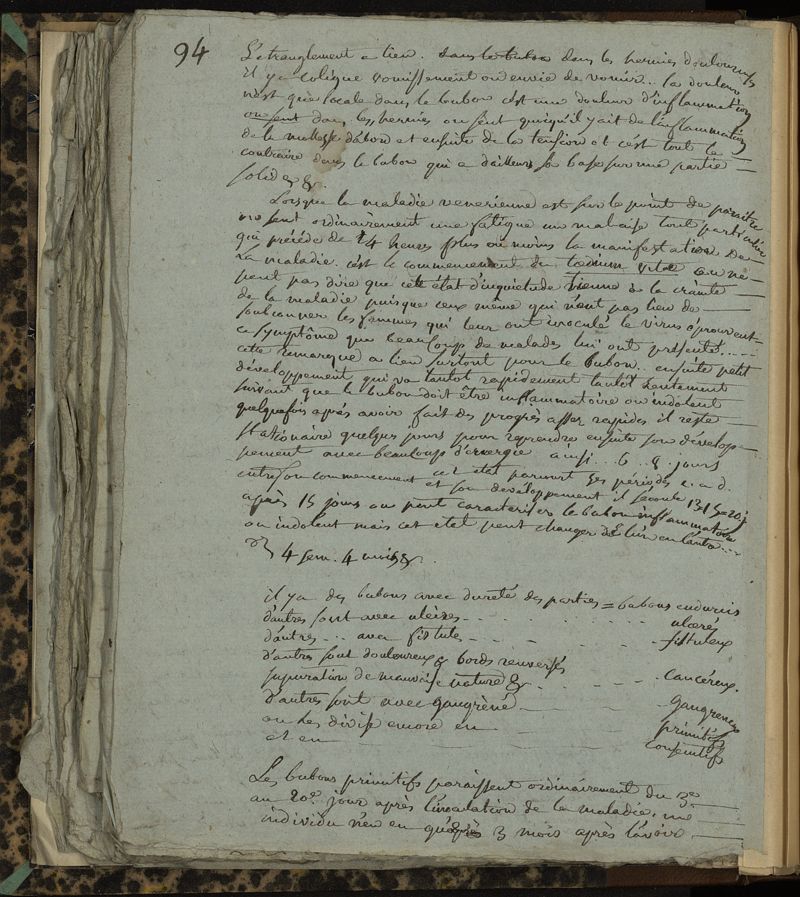 94
L'etranglement a lieu. dans le bubon dans les hernies douloureuses
il y a colique vomissement ou envie de vomir.. la douleur
n'est que locale dans le bubon c'est une douleur d'inflammation
on sent dans les hernies on sent quoiqu'il y ait de l'inflammation
de la mollesse d'abord et ensuite de la tension et c'est tout le
contraire dans le bubon qui a d'ailleurs sa base sur une partie
solide &c.
Lorsque la maladie venerienne est sur le point de paroitre
on sent ordinairement une fatigue un malaise tout particulier
qui précéde de 24 heures plus ou moins la manifestation de
la maladie c'est le commencement du toedium vitae on ne
peut pas dire que cet état d'inquietude vienne de la crainte
de la maladie puisque ceux même qui n'ont pas lieu de
soubçonner les femmes qui leur ont inoculé le virus éprouvent
ce symptôme que beaucoup de malades lui ont présenté.....
cette remarque a lieu surtout pour le bubon.. ensuite petit
développement qui va tantot rapidement tantot lentement
suivant que le bubon doit être inflammatoire ou indolent
quelquefois après avoir fait des progrès assez rapides il reste
stationaire quelques jours pour reprendre ensuite son dévelop-
pement avec beaucoup d'energie ainsi... 6.. 8. jours
cet état parcourt ses périodes c. a d.
entre son commencement et son développement il s'écoule 13 15 = 20 j
après 15 jours on peut caracteriser le bubon inflammatoire
ou indolent mais cet état peut changer de l'un en l'autre...
4 sem. 4 mois &c.
il y a des bubons avec dureté des parties = bubons endurcis
d'autres sont avec ulcères... ulcerés
d'autres... avec fistules... fistuleux
d'autres sont douloureux & bords renversés
supuration de mauvaise nature &c... cancéreux.
D'autres sont avec gangrène... gangreneux
on les divise encore en primitifs
et en consecutifs
Les bubons primitifs paraissent ordinairement du 3e
au 20e jour après l'inoculation de la maladie. un
individu n'en eu que 3 mois après l'avoir